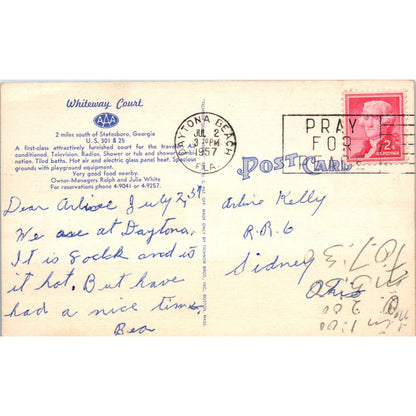 Whiteway Court
AAA
2 miles south of Statesboro, Georgia
U. S. 301 & 25
A first-class attractively furnished court for the traveler. Air
conditioned. Television. Radios. Shower or tub and shower
nation. Tiled baths. Hot air and electric glass panel heat. Spacious
grounds with playground equipment.
Very good food nearby.
Owner-Managers Ralph and Julia White
For reservations phone 4-9041 or 4-9257.
DAYTONA BEACH
JUL 2
PM
1957
FLA.
PRAY
FOR
2¢
U.S. POSTAGE
POST CARD
Dear Arline July 2,
We are at Daytona.
It is good and
it hot. But have
had a nice time.
Bea
Arline Kelly
R.R. 6
Sidney
Ohio
10.7.3
2.00
1.00